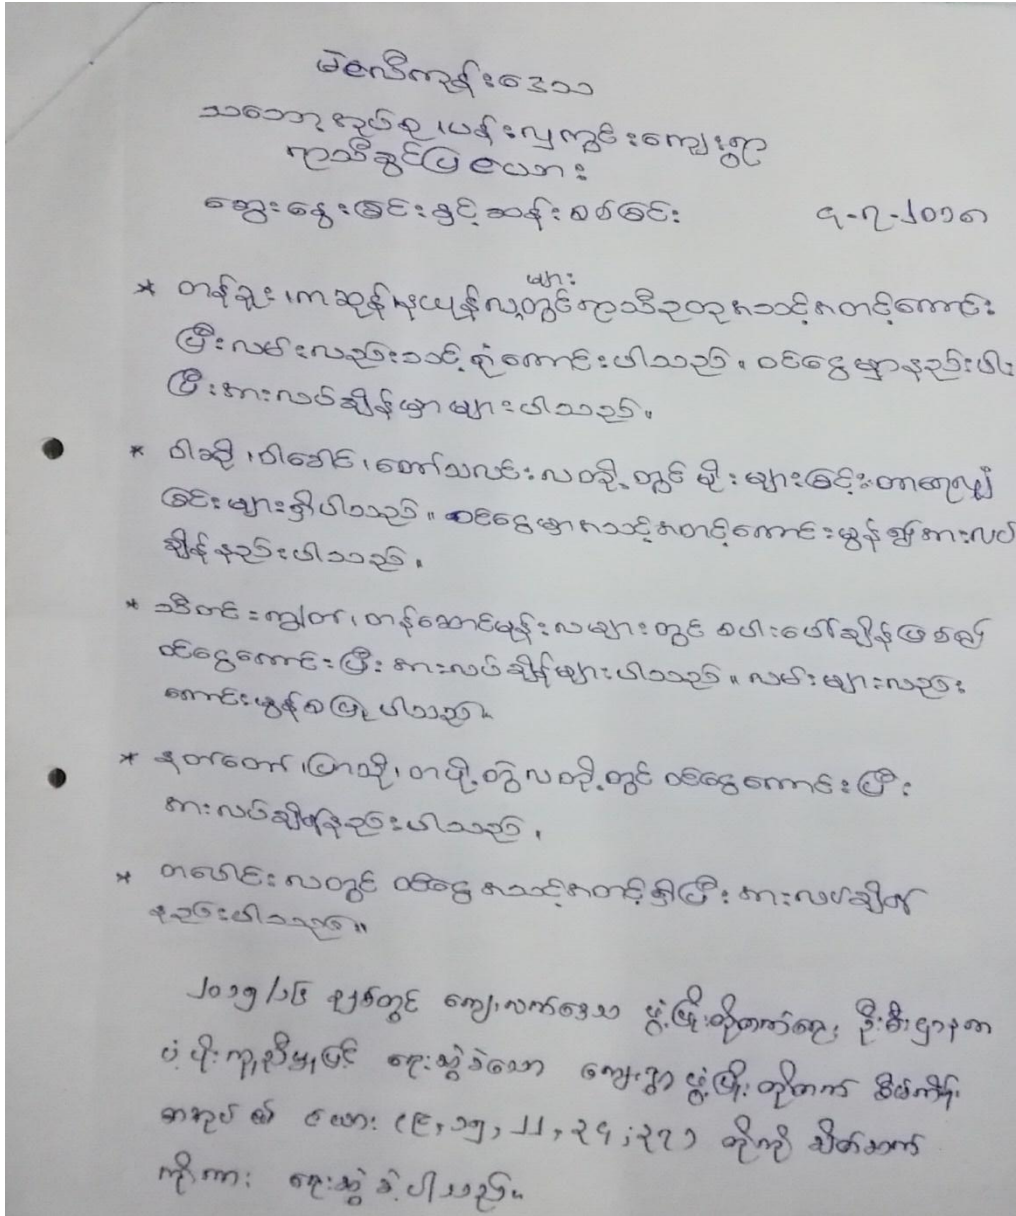 မဲဇလီကုန်းဒေသ
သဘောၤအုပ်စု၊ပန်းလှကွင်းကျေးရွာ
ရာသီခွင်ပြဇယား
ဆွေးနွေးခြင်းနှင့်ဆန်းစစ်ခြင်း ၅-၇-၂၀၁၈
* တန်ခူး၊ကဆုန်၊နယုန်လများတွင်ရာသီဥတုအသင့်အတင့်ကောင်း
ပြီးလမ်းလည်းသင့်ရုံကောင်းပါသည်။ ဝင်ငွေမှာနည်းပါး
ပြီးအားလပ်ချိန်မှာများပါသည်။
* ဝါဆို၊ဝါခေါင်၊တော်သလင်းလတို့တွင် မိုးများခြင်း၊တာရေလျှံ
ခြင်းများရှိပါသည်။ ဝင်ငွေမှာအသင့်အတင့်ကောင်းမွန်၍အားလပ်
ချိန်နည်းပါသည်။
* သီတင်းကျွတ်၊တန်ဆောင်မုန်းလများတွင် စပါးပေါ်ချိန်ဖြစ်၍
ဝင်ငွေကောင်းပြီး အားလပ်ချိန်များပါသည်။ လမ်းများလည်း
ကောင်းမွန်စပြုပါသည်။
* နတ်တော်၊ပြာသို၊တပို့တွဲလတို့တွင် ဝင်ငွေကောင်းပြီး
အားလပ်ချိန်နည်းပါသည်။
* တပေါင်းလတွင် ဝင်ငွေ အသင့်အတင့်ရှိပြီး အားလပ်ချိန်
နည်းပါသည်။
၂၀၁၅/၁၆ ခုနှစ်တွင် ကျေးလက်ဒေသ ဖွံ့ဖြိုးတိုးတက်ရေး ဦးစီးဌာန၏
ပံ့ပိုးကူညီမှုဖြင့် ရေးဆွဲခဲ့သော ကျေးရွာ ဖွံ့ဖြိုးတိုးတက်ရေး စီမံကိန်း
စာအုပ်၏ ဇယား (၉, ၁၅, ၂၂, ၂၅, ၂၇) တို့ကို
ကိုးကား ရေးဆွဲခဲ့ပါသည်။